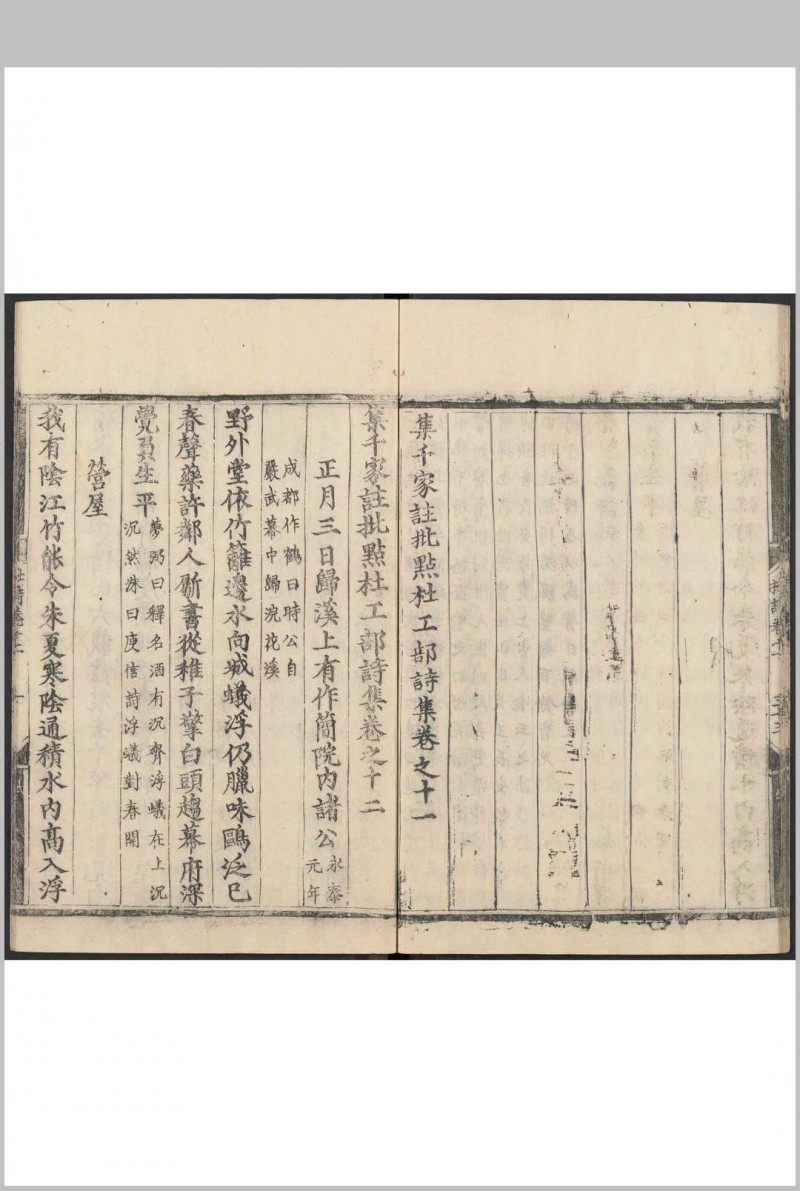 集千家註批點杜工部詩集卷之十一
集千家註批點杜工部詩集卷之十二
正月三日歸溪上有作簡院內諸公永泰
元年
成都作鶴曰時公自
嚴武幕中歸浣花溪
野外堂依竹籬邊水向城蟻浮仍臘味鷗泛已
春聲藥許鄰人斸書從稚子擎白頭趨幕府深
覺負生平
夢弼曰釋名酒有沉齊浮蟻在上沉
沉然洙曰庾信詩浮蟻對春開
營屋
我有陰江竹能令朱夏寒陰通積水內高入浮